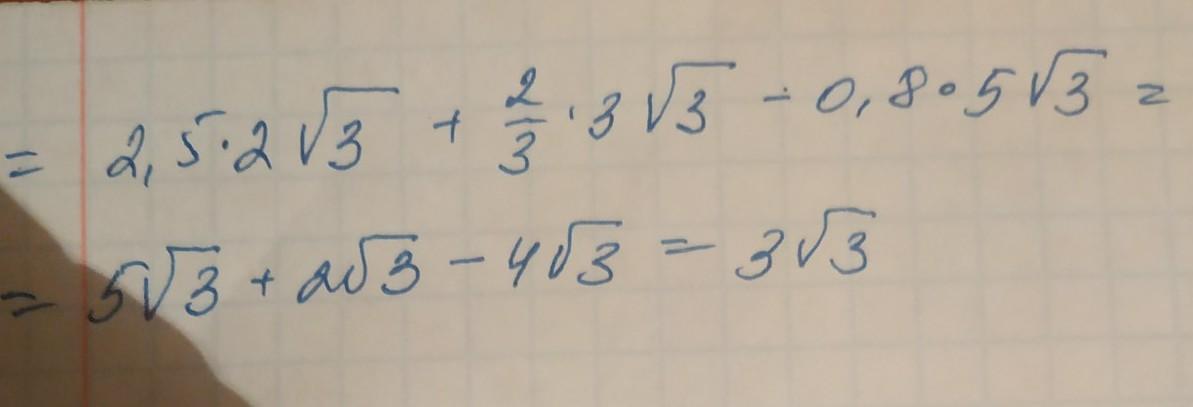 = 2,5·2√3 + 2/3·3√3 - 0,8·5√3 =
= 5√3 + 2√3 - 4√3 = 3√3